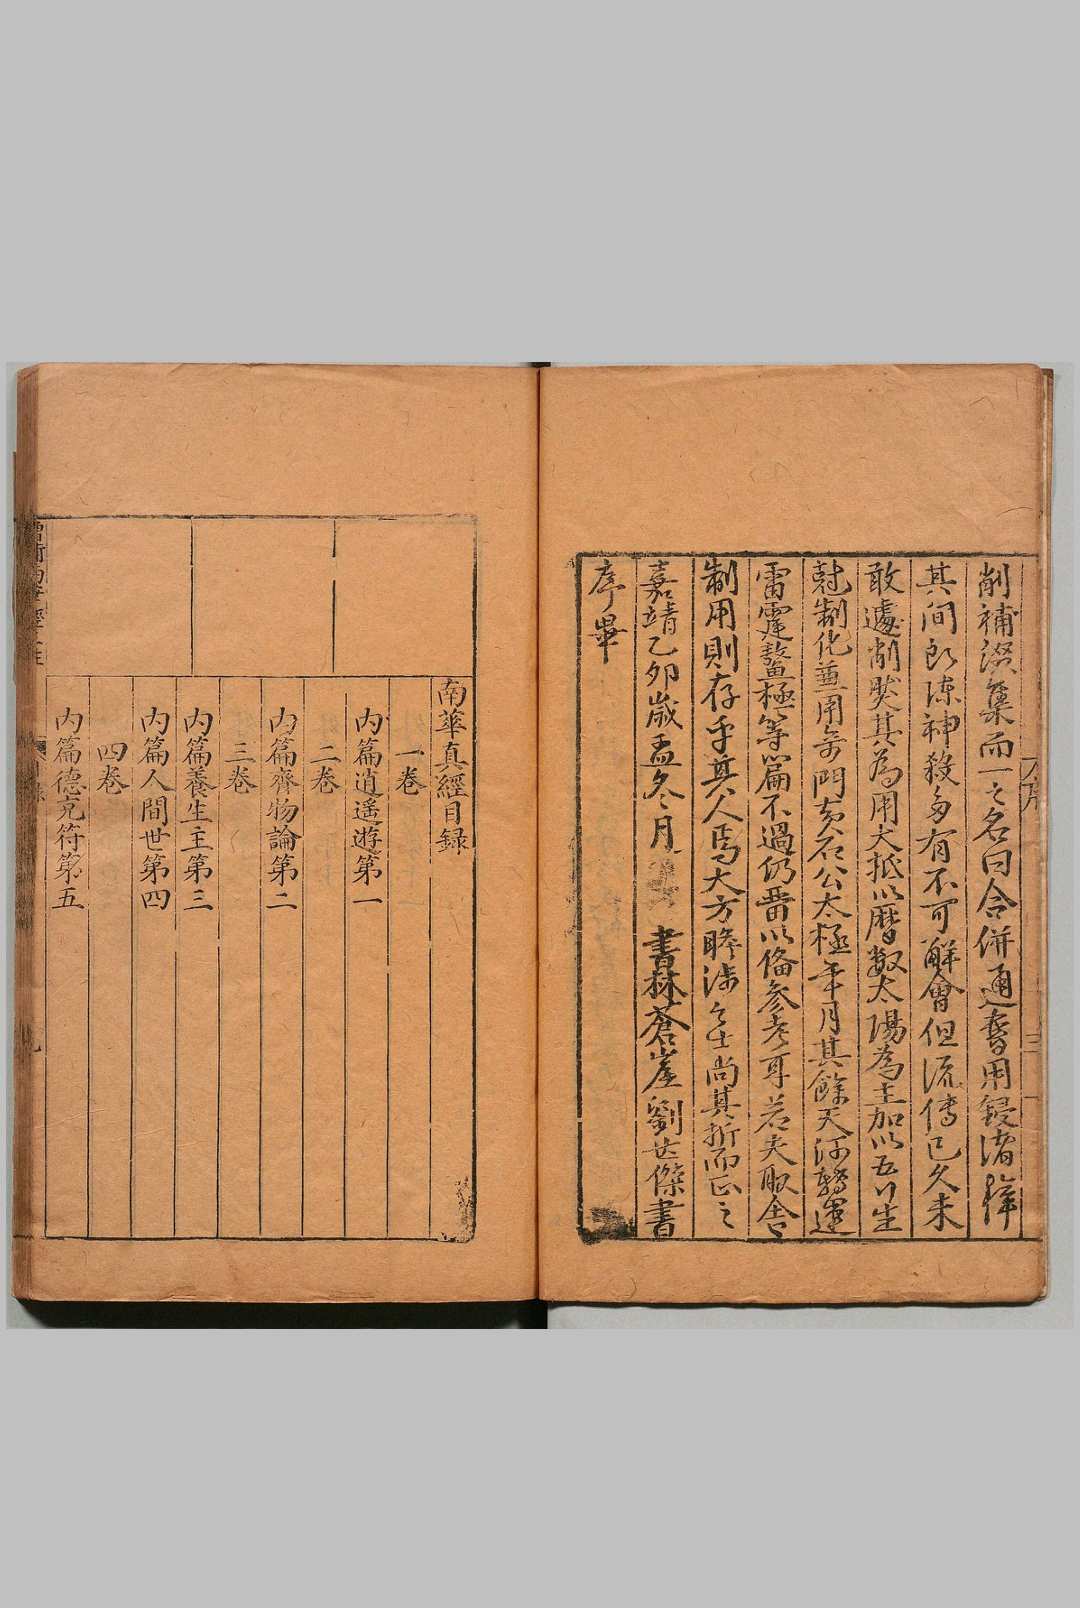 削補漏集而一之名曰合併通書用鋟諸梓
其間郎陳神殺多有不可解會但流傳已久未
敢遽削然其為用大抵以曆數太陽為主加以五行生
尅制化兼用奇門黄石公太極年月其餘天河轉運
雷霆鰲極等篇不過仍舊以備參考耳若夫取舍
制用則存乎其人焉大方
尚其折而正之
嘉靖乙卯歲孟冬月 書林蒼崖劉世傑書
序畢
南華真經目錄
一卷
内篇逍遥遊第一
二卷
内篇齊物論第二
三卷
内篇養生主第三
内篇人間世第四
四卷
内篇德充符第五